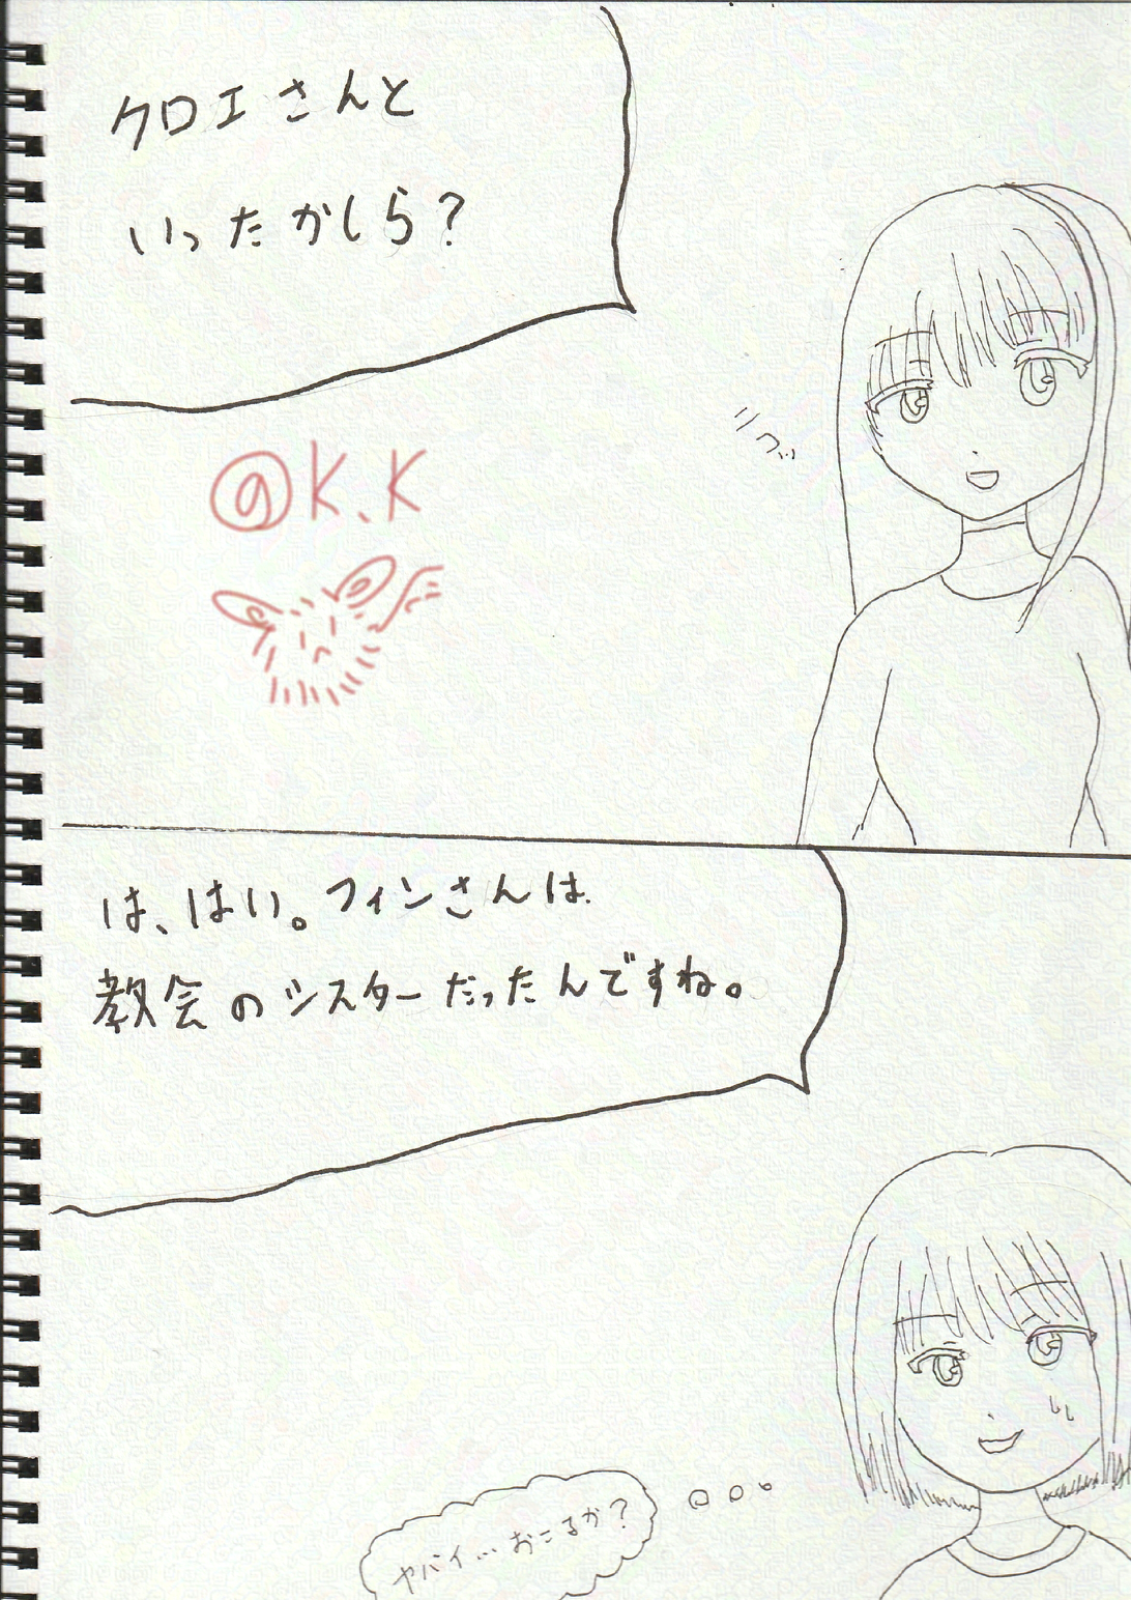 クロエさんと
いったかしら?
ニコッ
@K.K
は、はい。フィンさんは
教会のシスターだったんですね。
ヤバイ…おこるか?